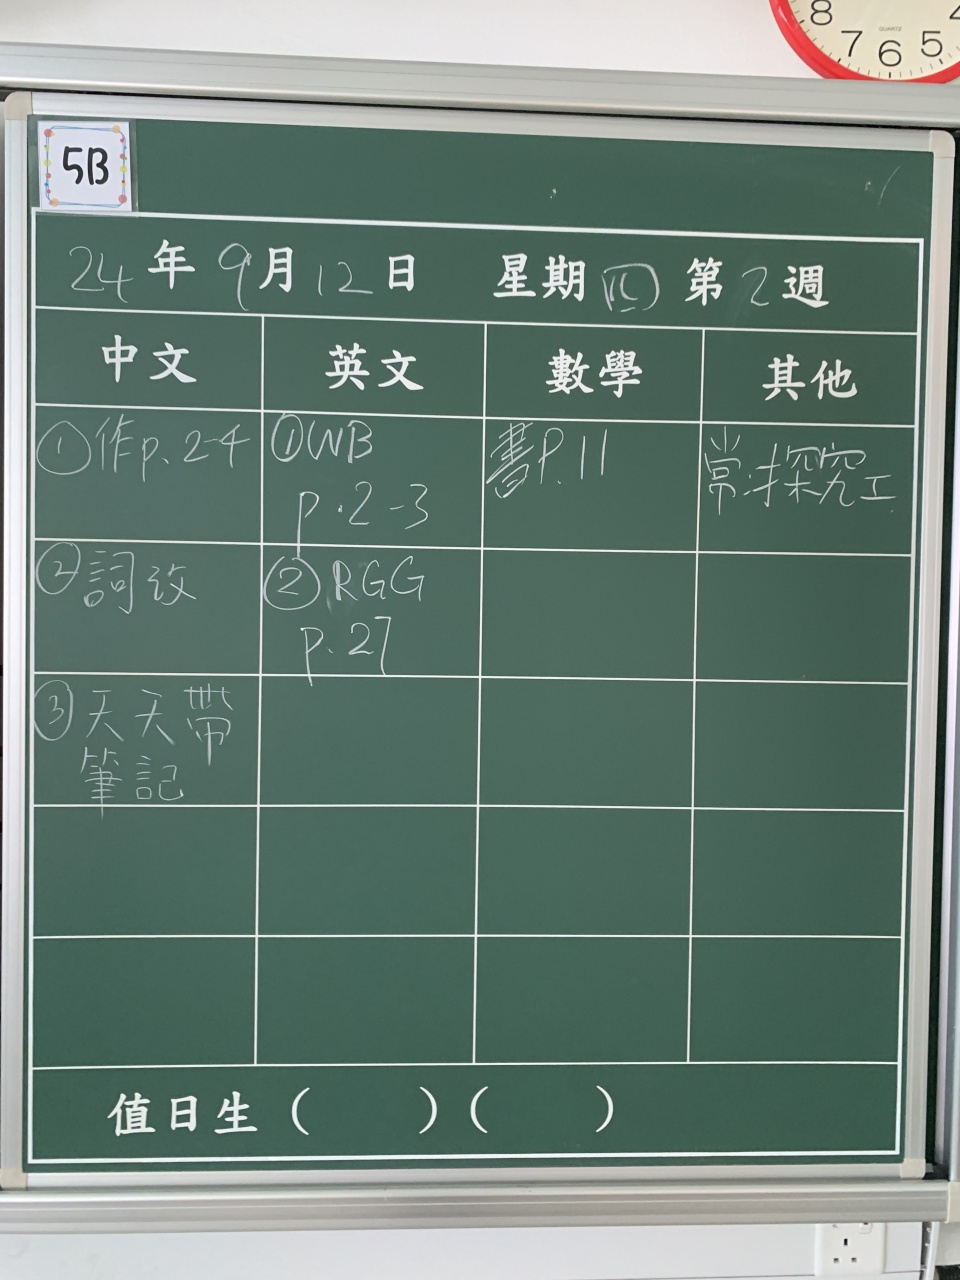 8 7 6 5 4
QUARTZ
5B
24年9月12日 星期四 第2週
中文 英文 數學 其他
①作p.2-4
①WB
p.2-3
書P.11
常:探究工
②詞改
②RGG
p.27
③天天帶
筆記
值日生( )( )